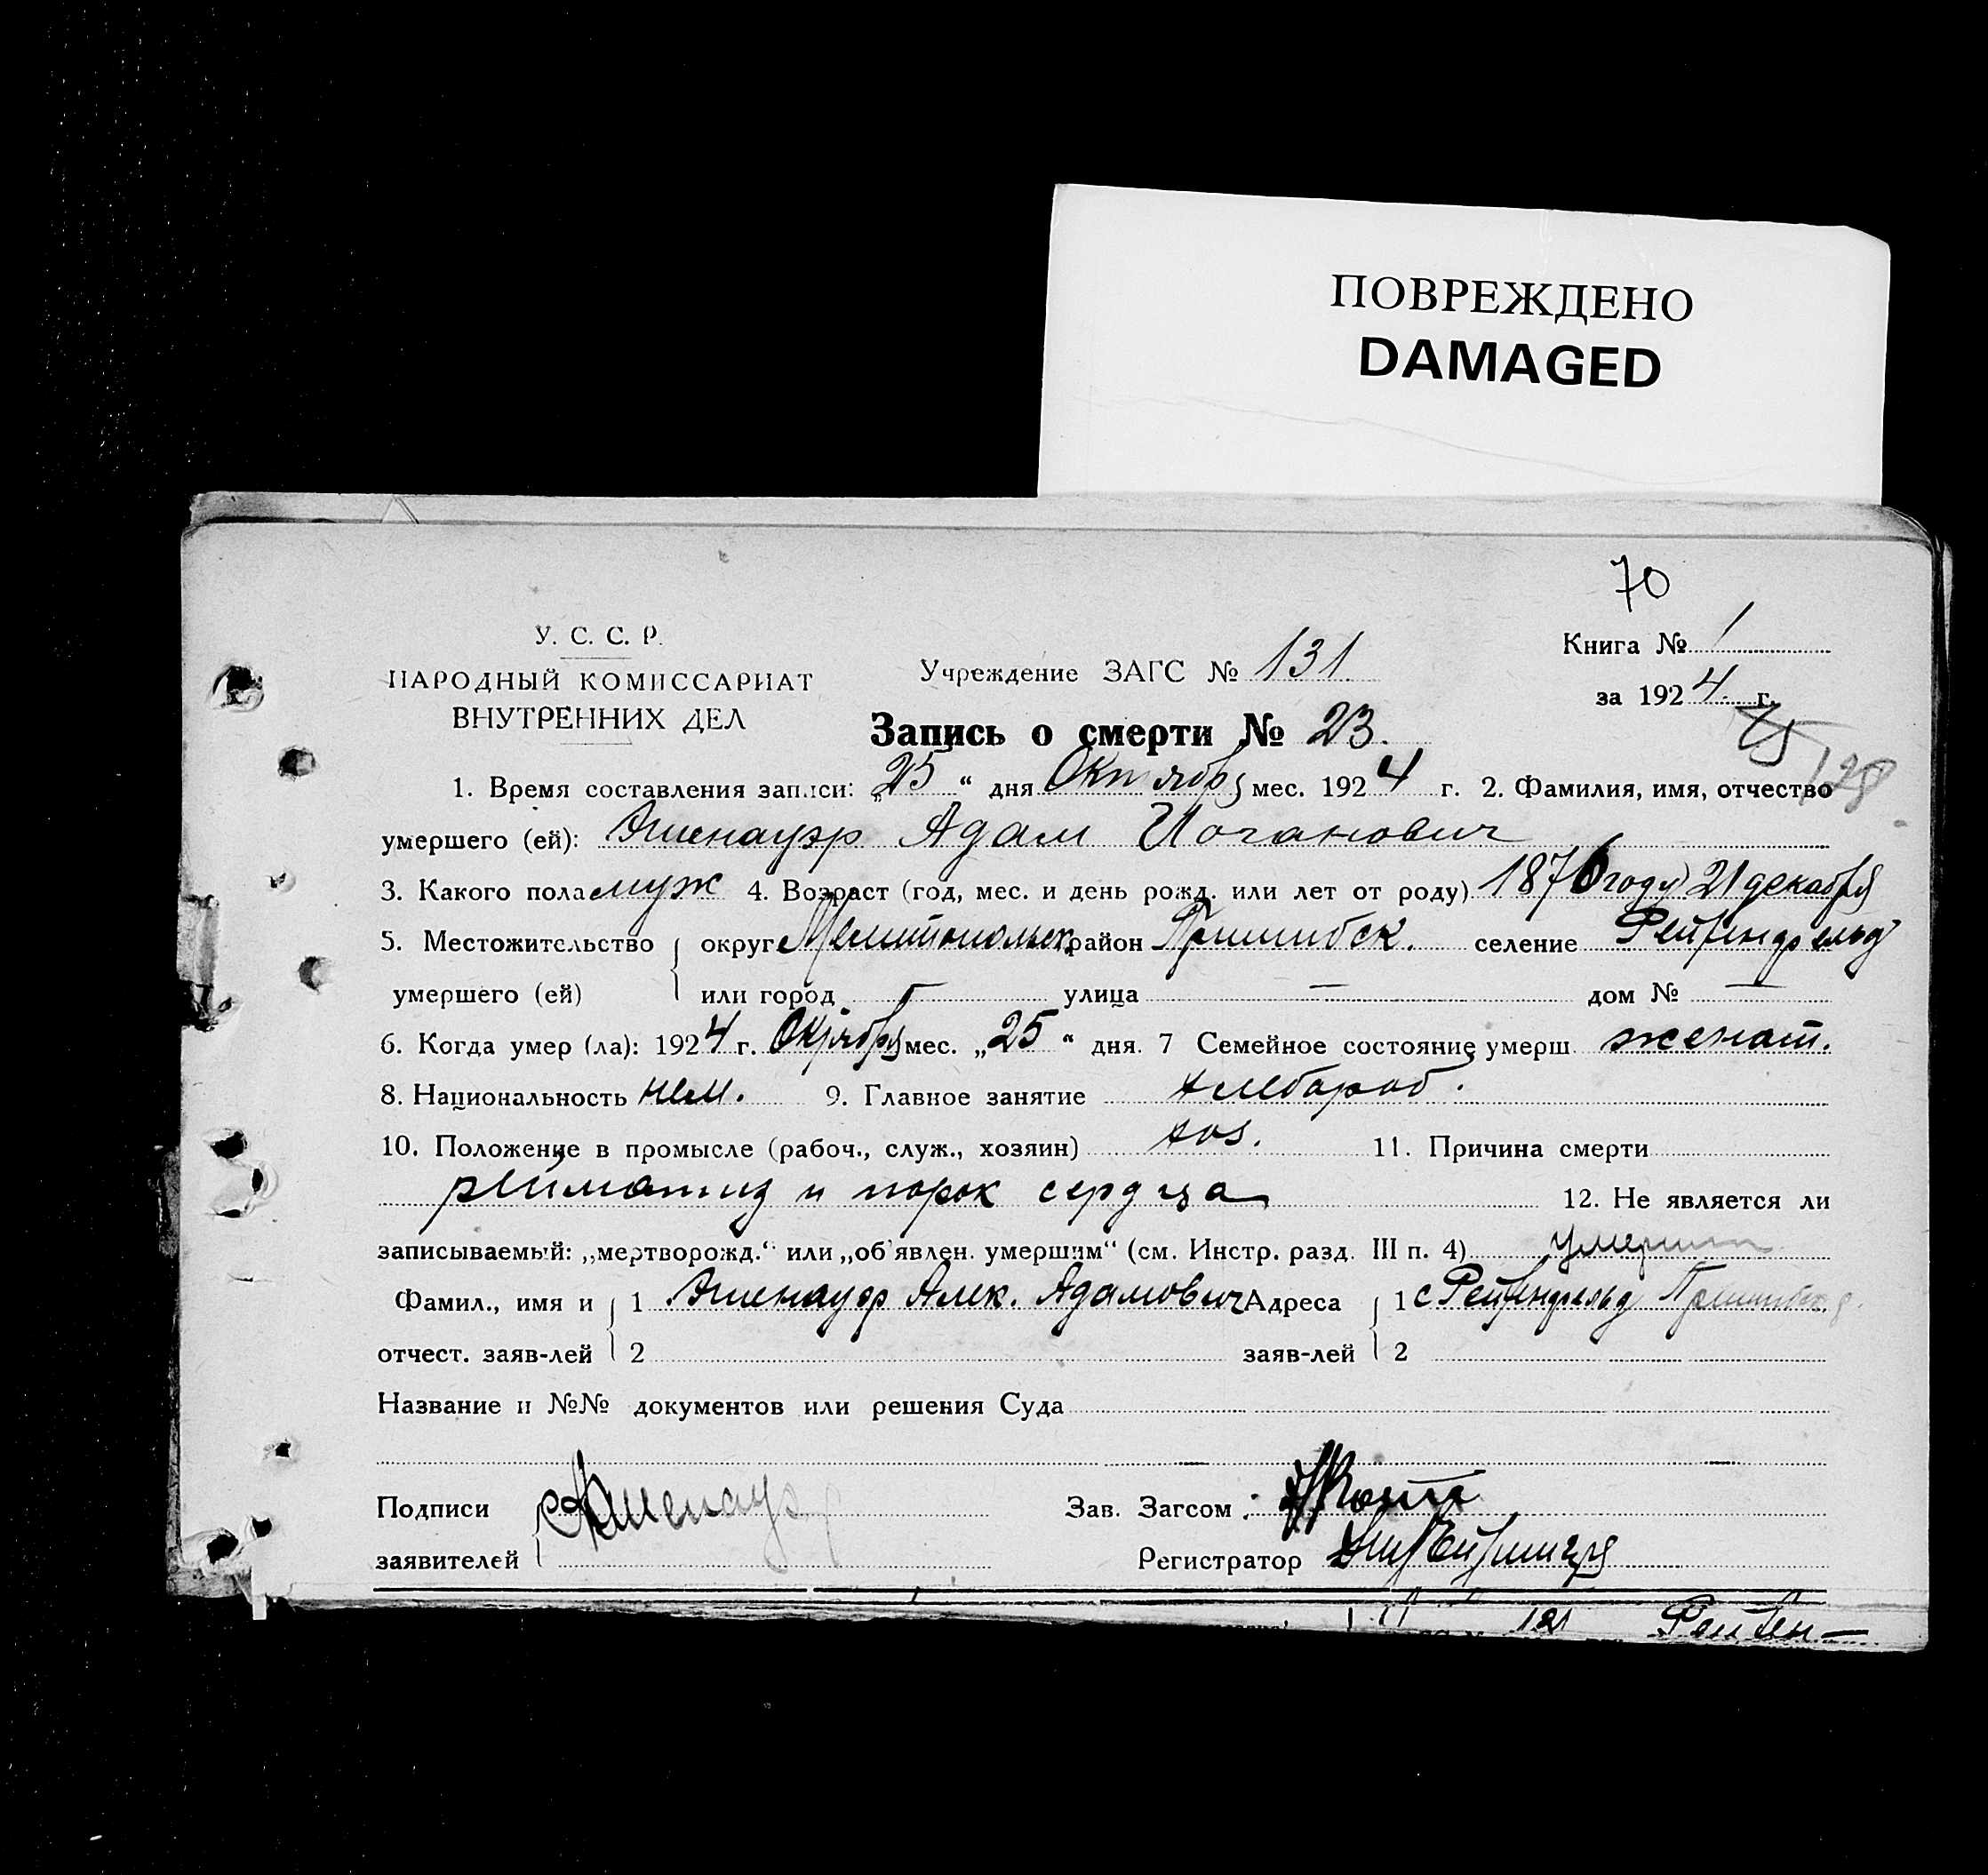 ПОВРЕЖДЕНО
DAMAGED
70
У. С. С. Р.
НАРОДНЫЙ КОМИССАРИАТ
ВНУТРЕННИХ ДЕЛ
Учреждение ЗАГС № 131.
Книга № 1
за 1924. г.
Запись о смерти № 23.
75
128
1. Время составления записи: „25“ дня Октября мес. 1924 г. 2. Фамилия, имя, отчество
умершего (ей): Эшенауэр Адам Иоганович
3. Какого пола муж 4. Возраст (год, мес. и день рожд. или лет от роду) 1876 году 21 декабря
5. Местожительство округ Мелитопольск. район Пришибск. селение Рейхендфельд
умершего (ей) или город — улица — дом № —
6. Когда умер (ла): 1924 г. Октября мес. „25“ дня. 7 Семейное состояние умерш. женат.
8. Национальность нем. 9. Главное занятие хлебороб.
10. Положение в промысле (рабоч., служ., хозяин) хоз. 11. Причина смерти
рейматиз и порок сердца 12. Не является ли
записываемый: „мертворожд.“ или „об'явлен. умершим“ (см. Инстр. разд. III п. 4) умершим
Фамил., имя и 1 Эшенауэр Алек. Адамович Адреса 1 с Рейхендфельд
отчест. заяв-лей 2 заяв-лей 2
Название и №№ документов или решения Суда
Подписи Эшенауэр Зав. Загсом
заявителей Регистратор
121 Рейхен—